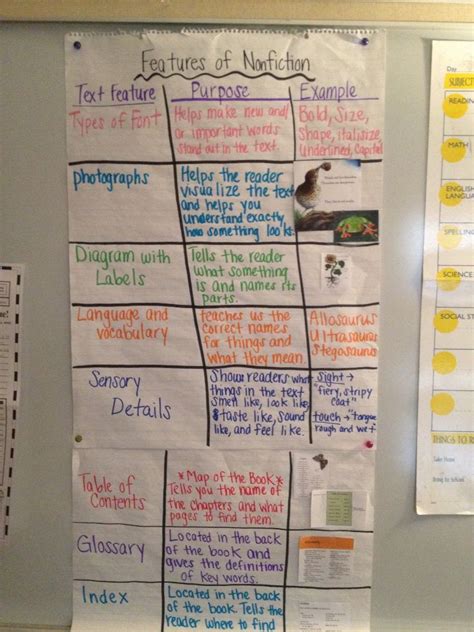 Features of Nonfiction
Text Feature Purpose Example
Types of Font
Helps make new and/
or important words
stand out in the text.
Bold, Size,
Shape, italisize
Underlined, Capital
photographs
Helps the reader
visualize the text
and helps you
understand exactly
how something looks.
Diagram with
Labels
Tells the reader
what something
is and names its
parts.
Language and
vocabulary
teaches us the
correct names
for things and
what they mean.
Allosaurus
Ultrasaurus
Stegosaurus
Sensory
Details
Shows readers what
things in the text
smell like, look like,
taste like, sound
like, and feel like.
sight →
"fiery, stripy
coat"
touch → "tongue
rough and wet"
Table of
Contents
*Map of the Book*
Tells you the name of
the chapters and what
pages to find them.
Glossary
Located in the back
of the book and
gives the definitions
of key words.
Index
Located in the back
of the book. Tells the
reader where to find
Day
SUBJECT
READING
MATH
ENGLISH
LANGUAGE
SPELLING
SCIENCE
SOCIAL ST
THINGS TO
Take Home